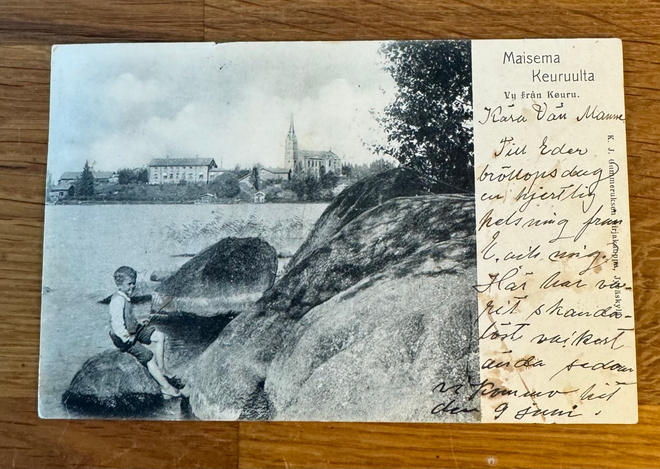 Maisema
Keuruulta
Vy från Keuru.
Kära Vän Manne
Till Eder
bröllopsdag
en hjertlig
helsning från
E. och mig.
Här har va-
rit skanda-
löst vackert
ända sedan
vi kommo hit
den 9 juni.
K. J. Gummeruksen kirjakauppa, Jyväskylä